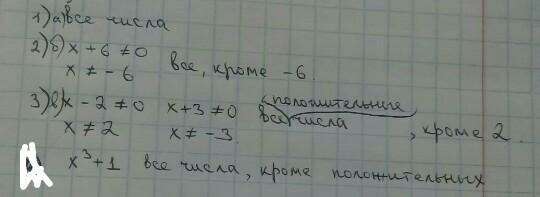 1) а) все числа
2) б) x + 6 ≠ 0
x ≠ - 6 все, кроме -6.
3) в) x - 2 ≠ 0 x + 3 ≠ 0 положительные
x ≠ 2 x ≠ -3 все числа, кроме 2.
x³ + 1 все числа, кроме положительных